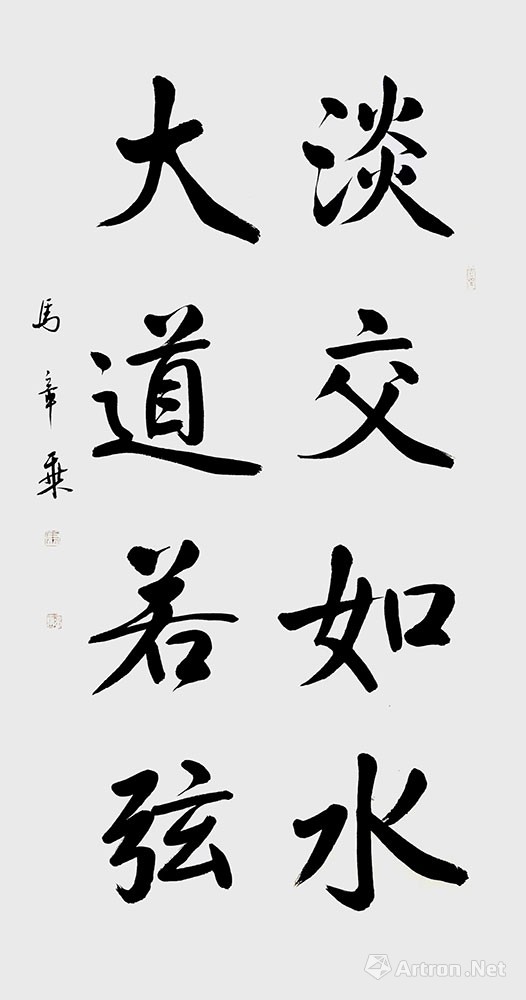 淡交如水
大道若弦
馬章乗
Artron.Net